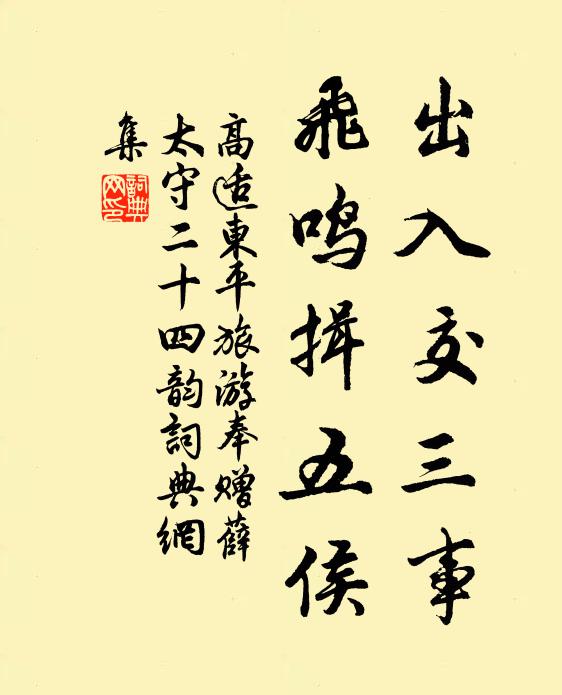 出入交三事
飛鳴揖五侯
高适東平旅游奉赠薛
太守二十四韵詞典網
集
詞典
网印